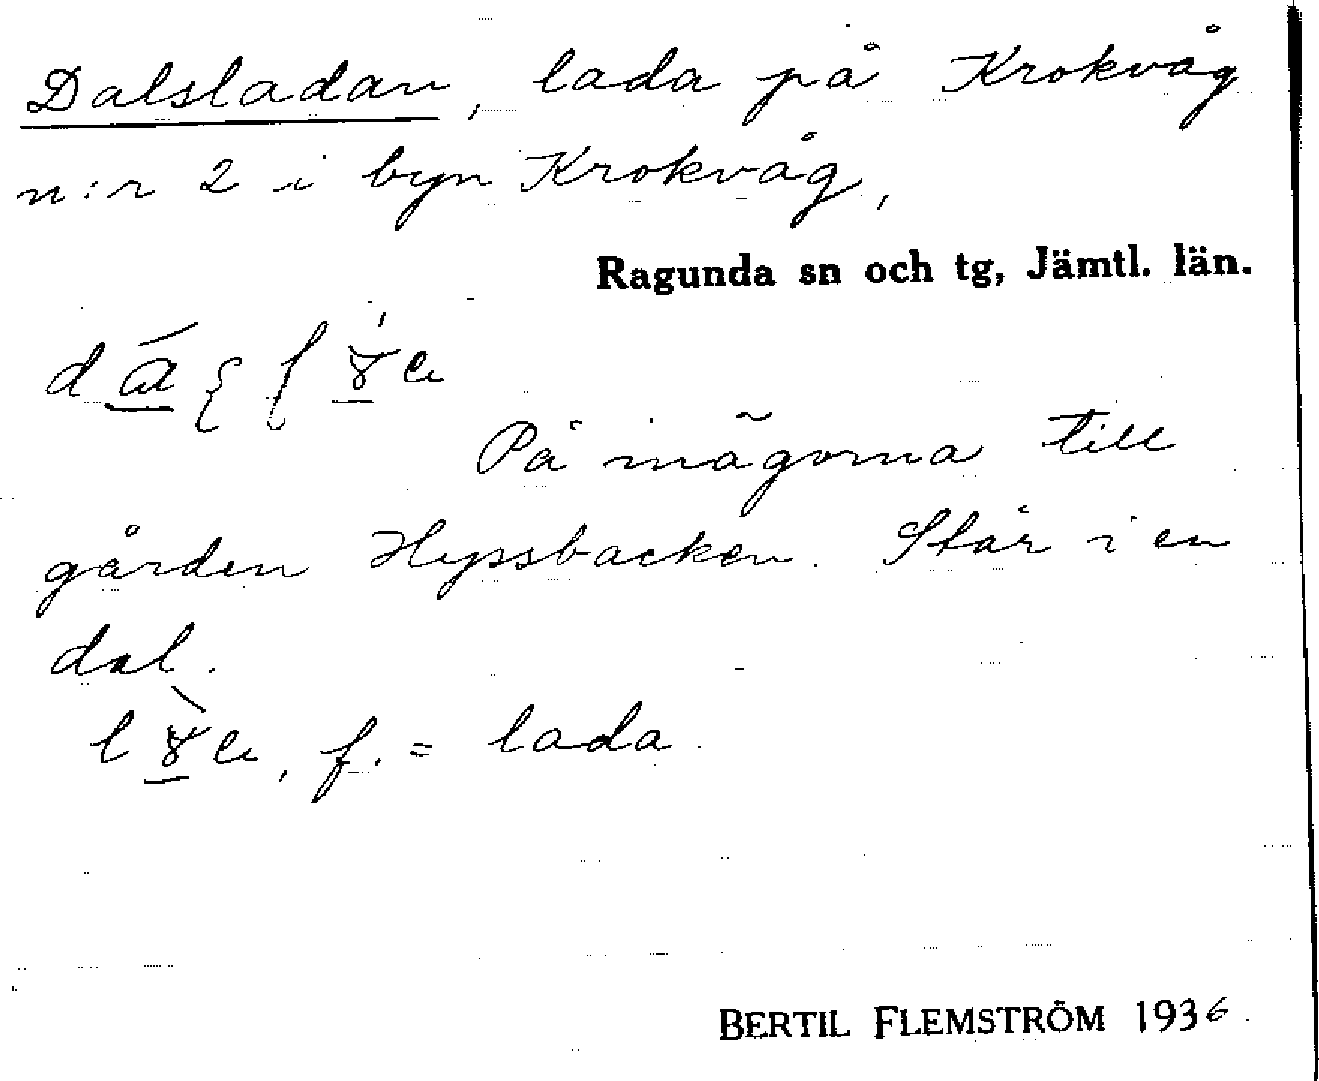 Dalsladan, lada på Krokvåg
n:r 2 i byn Krokvåg,
Ragunda sn och tg, Jämtl. län.
På inägorna till
gården Hyssbacken. Står i en
dal.
f. = lada.
BERTIL FLEMSTRÖM 1936.